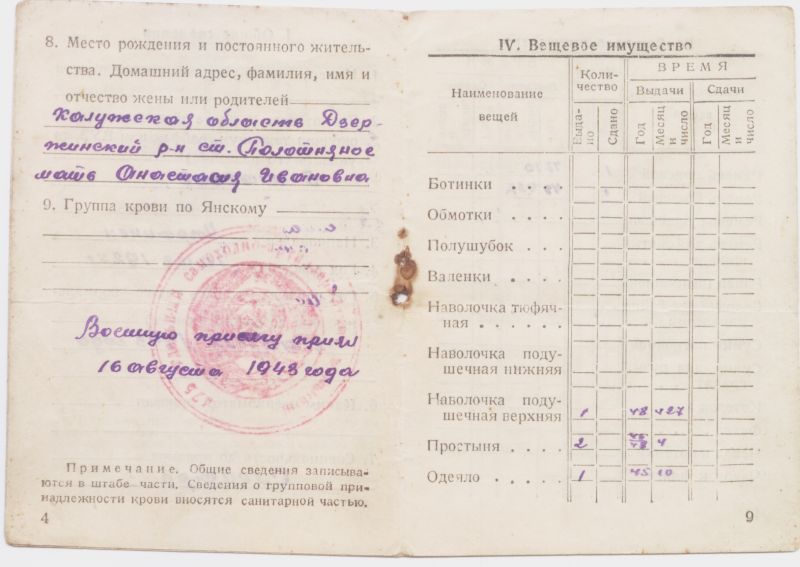 8. Место рождения и постоянного житель-
ства. Домашний адрес, фамилия, имя и
отчество жены или родителей
Калужская область Дзер-
жинский р-н ст. Полотняное
мать Анастасия Ивановна
9. Группа крови по Янскому
Военную присягу принял
16 августа 1943 года
Примечание. Общие сведения записыва-
ются в штабе части. Сведения о групповой при-
надлежности крови вносятся санитарной частью.
4
IV. Вещевое имущество
Наименование
вещей
Коли-
чество
ВРЕМЯ
Выдачи
Сдачи
Выда-
но
Сдано
Год
Месяц
и
число
Год
Месяц
и
число
Ботинки . . . .
Обмотки . . . .
Полушубок . . .
Валенки . . . .
Наволочка тюфяч-
ная . . . . . .
Наволочка поду-
шечная нижняя
Наволочка поду-
шечная верхняя 1 48 427
Простыня . . . . 2 48 4
Одеяло . . . . . 1 45 10
9